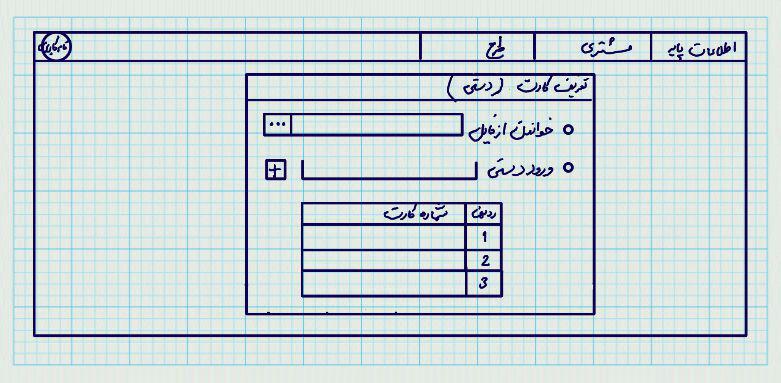 اطلاعات پایه مشتری طرح نام کاربری
تعریف کارت (دستی)
خواندن از فایل ...
ورود دستی +
ردیف شماره کارت
1
2
3